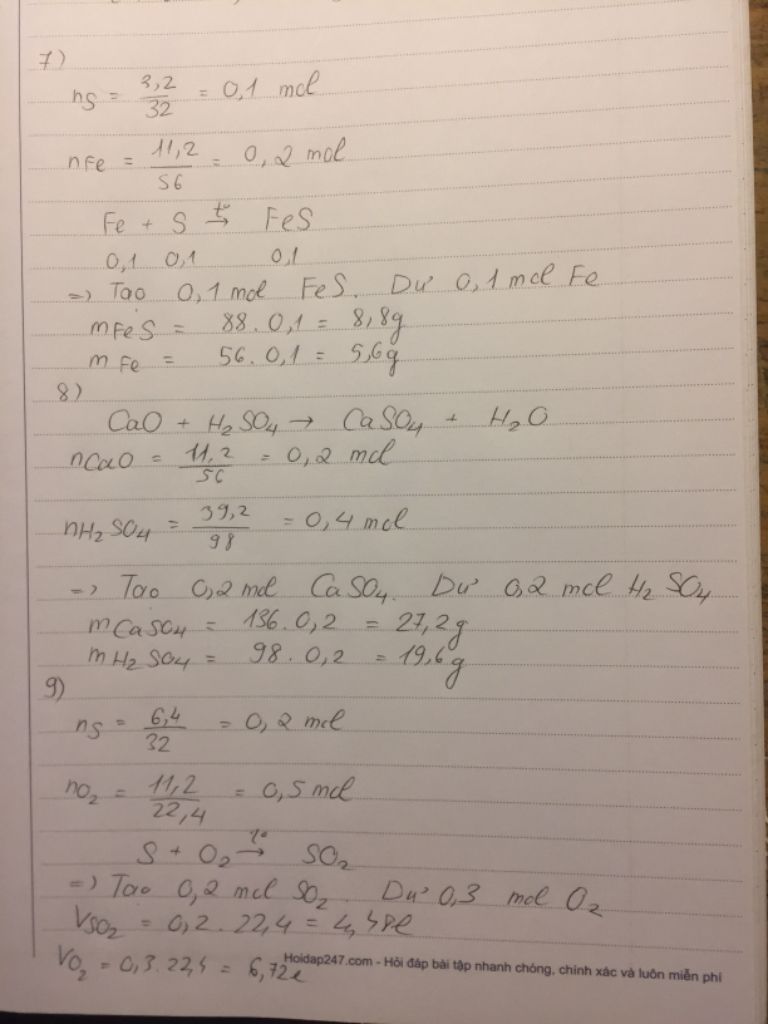 7)
nS = 3,2/32 = 0,1 mol
nFe = 11,2/56 = 0,2 mol
Fe + S t°→ FeS
0,1 0,1 0,1
=> Tạo 0,1 mol FeS. Dư 0,1 mol Fe
mFeS = 88.0,1 = 8,8g
mFe = 56.0,1 = 5,6g
8)
CaO + H₂SO₄ → CaSO₄ + H₂O
nCaO = 11,2/56 = 0,2 mol
nH₂SO₄ = 39,2/98 = 0,4 mol
=> Tạo 0,2 mol CaSO₄. Dư 0,2 mol H₂SO₄
mCaSO₄ = 136.0,2 = 27,2g
mH₂SO₄ = 98.0,2 = 19,6g
9)
nS = 6,4/32 = 0,2 mol
nO₂ = 11,2/22,4 = 0,5 mol
S + O₂ t°→ SO₂
=> Tạo 0,2 mol SO₂. Dư 0,3 mol O₂
VSO₂ = 0,2.22,4 = 4,48l
VO₂ = 0,3.22,4 = 6,72l
Hoidap247.com - Hỏi đáp bài tập nhanh chóng, chính xác và luôn miễn phí